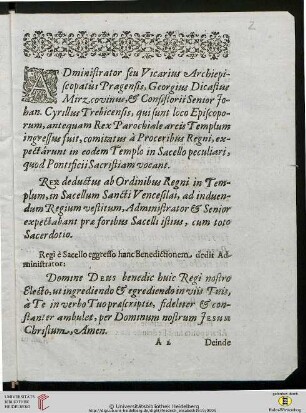 2
ADministrator seu Vicarius Archiepi-
scopatus Pragensis, Georgius Dicastus
Mirzcovinus, & Consistorii Senior Jo-
han. Cyrillus Trebicensis, qui sunt loco Episcopo-
rum, antequam Rex Parochiale arcis Templum
ingressus fuit, comitatus à Proceribus Regni, ex-
pectârunt in eodem Templo in Sacello peculiari,
quod Pontificii Sacristiam vocant.
Rex deductus ab Ordinibus Regni in Tem-
plum, in Sacellum Sancti Venceslai, ad induen-
dum Regium vestitum, Administrator & Senior
expectabant præ foribus Sacelli istius, cum toto
Sacerdotio.
Regi è Sacello egresso hanc Benedictionem, dedit Ad-
ministrator:
Domine Deus benedic huic Regi nostro
Electo, ut ingrediendo & egrediendo in viis Tuis,
à Te in verbo Tuo præscriptis, fideliter & con-
stanter ambulet, per Dominum nostrum Jesum
Christum, Amen.
A 2 Deinde
UNIVERSITÄTS-
BIBLIOTHEK
HEIDELBERG
© Universitätsbibliothek Heidelberg